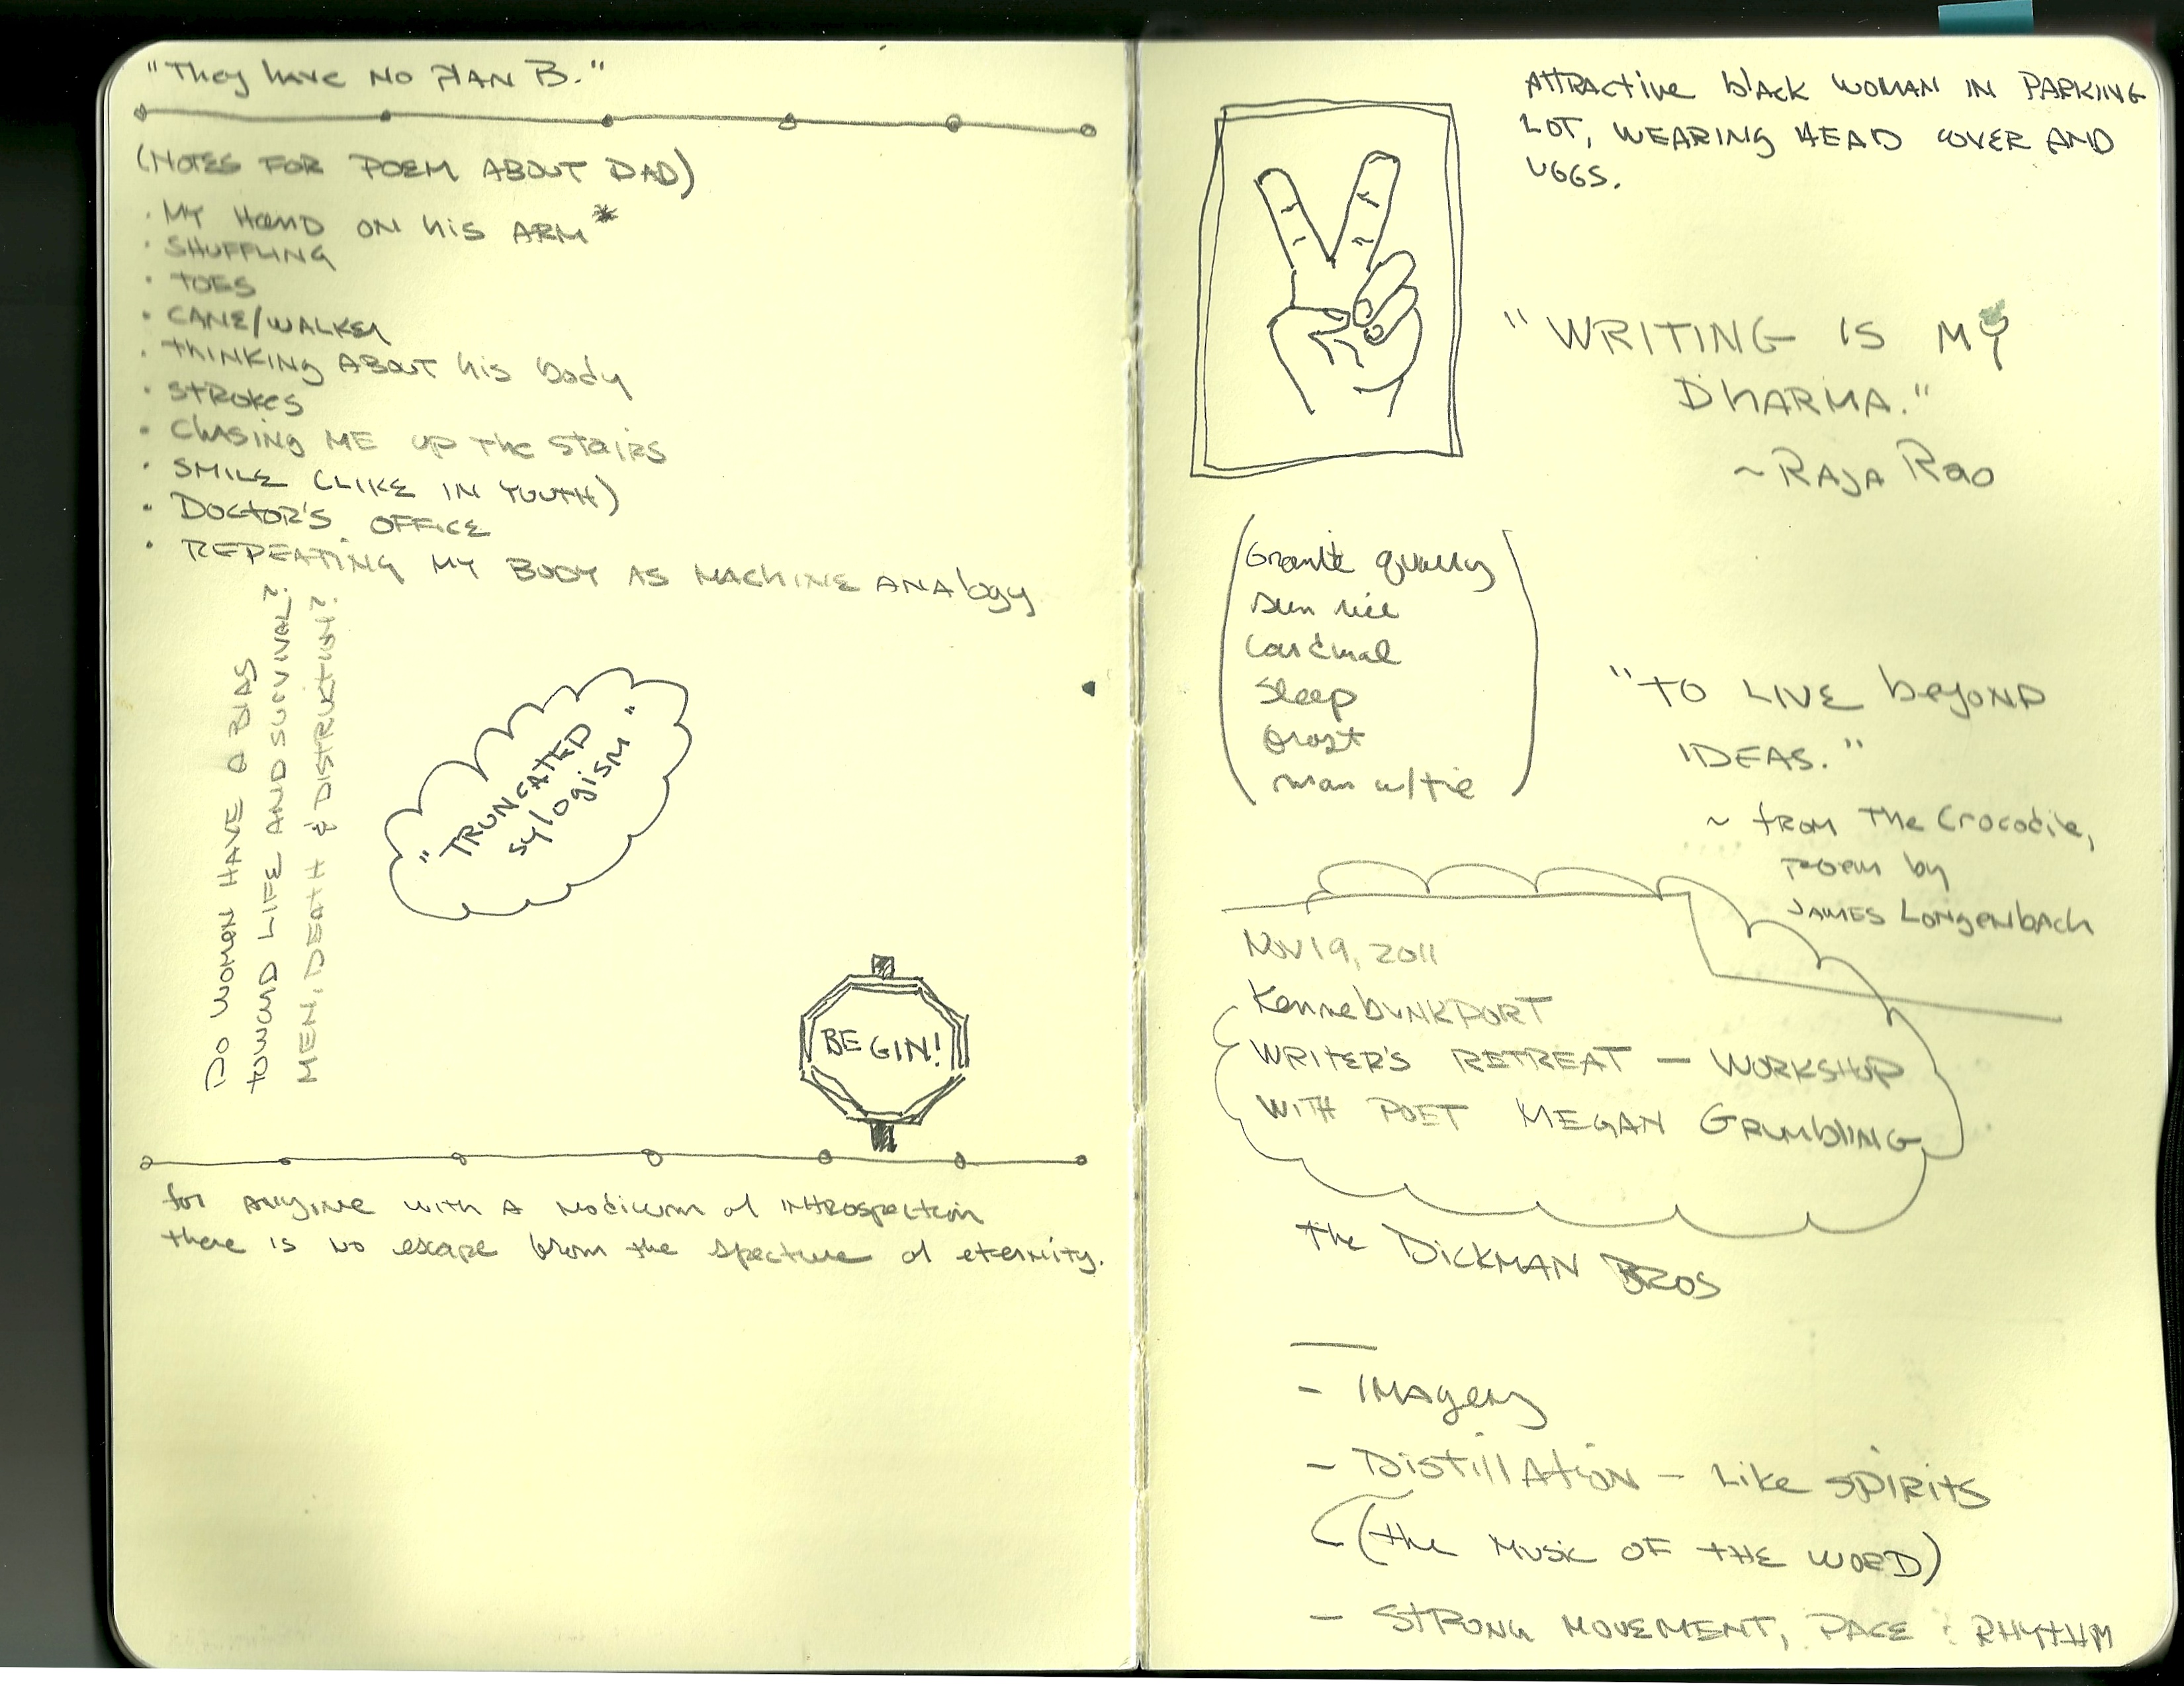 "They have NO PLAN B."
(NOTES FOR POEM ABOUT DAD)
· MY HAND ON his ARM *
· SHUFFLING
· TOES
· CANE/WALKER
· THINKING ABOUT his body
· STROKES
· CHASING ME UP The STAIRS
· SMILE (LIKE IN YOUTH)
· DOCTOR'S OFFICE
· REPEATING MY BODY AS MACHINE ANALOGY
DO WOMEN HAVE A BIAS
TOWARD LIFE AND SURVIVAL?
MEN, DEATH & DISTRUCTION?
"TRUNCATED
sylogism"
BEGIN!
for anyone with a modicum of introspection
there is no escape from the specture of eternity.
ATTRACTIVE black WOMAN IN PARKING
LOT, WEARING HEAD COVER AND
UGGS.
"WRITING IS MY
DHARMA."
~ RAJA RAO
Granite quarry
Sun rise
Cardinal
Sleep
man w/tie
"TO LIVE beyOND
IDEAS."
~ from The Crocodile,
poem by
JAMES LONGENBACH
Nov 19, 2011
KennebUNKPORT
WRITER'S RETREAT — WORKSHOP
WITH POET MEGAN GRUMBLING
The DICKMAN BROS
- IMAgery
- DISTILLATION - LIKE SPIRITS
(the MUSIC OF THE WORD)
- STRONG MOVEMENT, PACE & RHYTHM